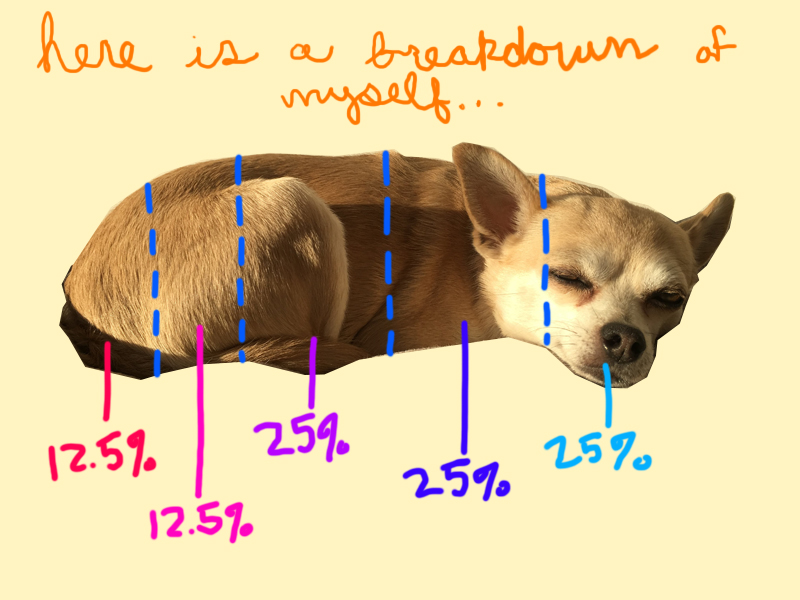 here is a breakdown of
myself...
12.5%
12.5%
25%
25%
25%